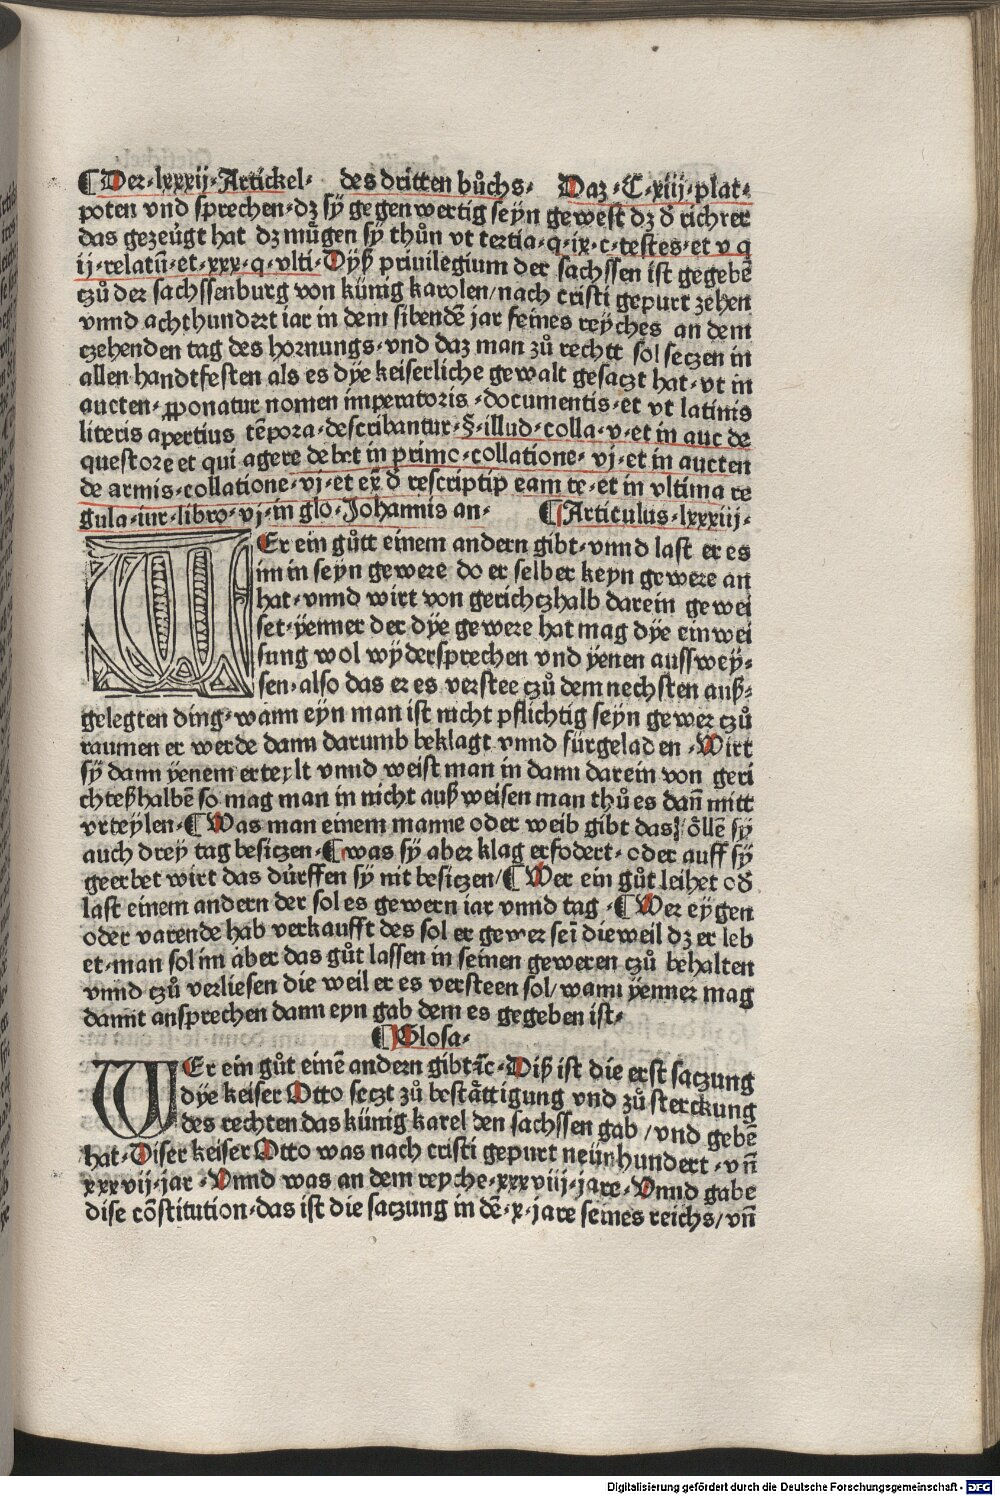 ¶Der·lxxxij·Artickel· des dritten bůchs· Daz·C·xiij·plat·
poten vnd sprechen·dz sÿ gegenwertig seyn gewest dz d̄ richter
das gezeúgt hat dz můgen sÿ thůn vt tertia·q·ix·c·testes·et v q
ij·relatū·et·xxx·q·vlti·Dÿß priuilegium der sachssen ist gegebē
czů der sachssenburg von künig karolen/nach cristi gepurt zehen
vnnd achthundert iar in dem sibendē jar seines reÿches an dem
czehenden tag des hornungs·vnd daz man zů rechtt sol seczen in
allen handtfesten als es dÿe keiserliche gewalt gesaczt hat·vt in
aucten·ꝓponatur nomen imperatoris·documentis·et vt latinis
literis apertius tēpora·describantur·§·illud·colla·v·et in auc de
questore et qui agere debet in primo·collatione·vj·et in aucten
de armis·collatione·vj·et ex̄ d̄ rescriptip eam te·et in vltima re
gula·iur·libro·vj·in glo·Johannis an· ¶Articulus·lxxxiij·
WEr ein gůtt einem andern gibt·vnnd last er es
im in seyn gewere do er selber keyn gewere an
hat·vnnd wirt von gerichczhalb darein gewei
set·ÿenner der dÿe gewere hat mag dÿe einwei
sung wol wÿdersprechen vnd ÿenen aussweÿ·
sen·also das er es verstee czů dem nechsten auß·
gelegten ding·wann eyn man ist nicht pflichtig seyn gewer czů
raumen er werde dann darumb beklagt vnnd fürgeladen·Wirt
sÿ dann ÿenem erteylt vnnd weist man in dann darein von geri
chteßhalbē so mag man in nicht außweisen man thů es dañ mitt
vrteylen·¶Was man einem manne oder weib gibt das söllē sÿ
auch drey tag besiczen·¶was sÿ aber klag erfodert·oder auff sÿ
geerbet wirt das dürffen sÿ nit besiczen/¶Wer ein gůt leihet od̄
last einem andern der sol es gewern iar vnnd tag·¶Wer eÿgen
oder varende hab verkaufft des sol er gewer sei dieweil dz er leb
et·man sol im aber das gůt lassen in seinen geweren czů behalten
vnnd czů verliesen die weil er es versteen sol/wann ÿenner mag
damit ansprechen dann eyn gab dem es gegeben ist·
¶Glosa·
WEr ein gůt einē andern gibt ⁊c·Diß ist die erst saczung
dÿe keiser Otto seczt zů bestättigung vnd zů sterckung
des rechten das künig karel den sachssen gab/vnd gebē
hat·Diser keiser Otto was nach cristi gepurt neünhundert·vñ
xxxvij·jar·Vnnd was an dem reyche·xxxviij·jare·Vnnd gabe
dise cōstitution·das ist die saczung in dē·x·jare seines reichs/vñ
Digitalisierung gefördert durch die Deutsche Forschungsgemeinschaft - DFG